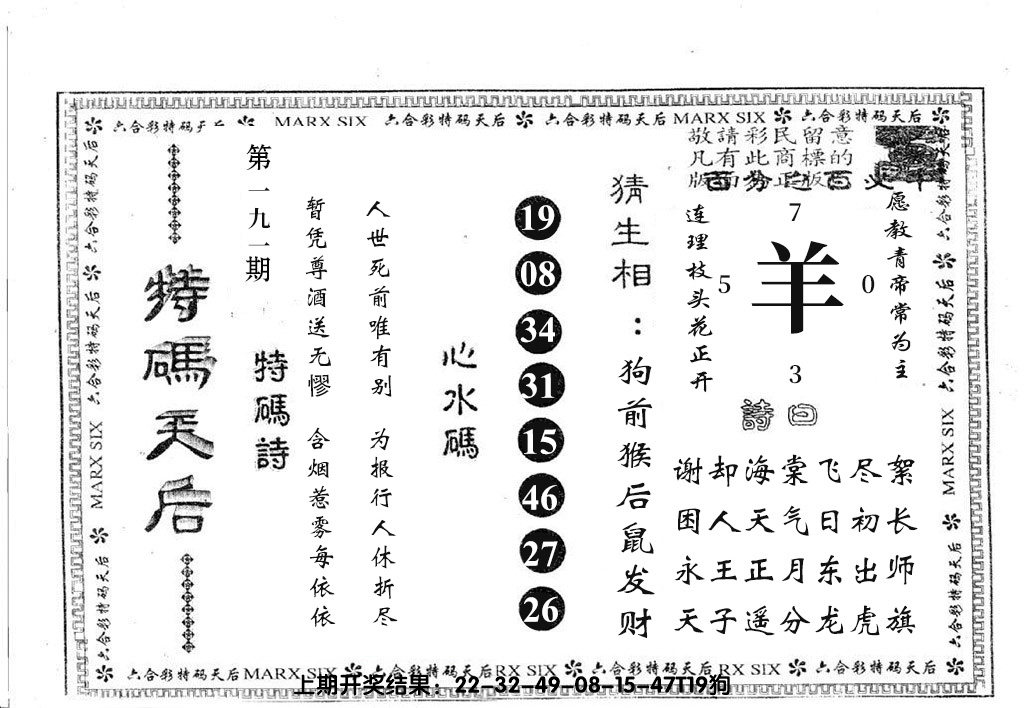 六合彩特码天后 MARX SIX 六合彩特码天后 六合彩特码天后 MARX SIX 六合彩特码天后
敬請彩民留意
凡有此商標的
版面为正版
愿教青帝常为主
连理枝头花正开
7
5 羊 0
3
詩曰
谢却海棠飞尽絮
困人天气日初长
永王正月东出师
天子遥分龙虎旗
猜生相：狗前猴后鼠发财
心水碼
19
08
34
31
15
46
27
26
特碼詩
人世死前唯有别 为报行人休折尽
暂凭尊酒送无憀 含烟惹雾每依依
第一九一期
特碼天后
六合彩特码天后 六合彩特码天后 MARX SIX 六合彩特码天后
六合彩特码天后 六合彩特码天后 MARX SIX 六合彩特码天后
六合彩特码天后 MARX SIX 六合彩特码天后 RX SIX 六合彩特码天后 RX SIX 六合彩特码天后
上期开奖结果：22-32-49-08-15-47T19狗